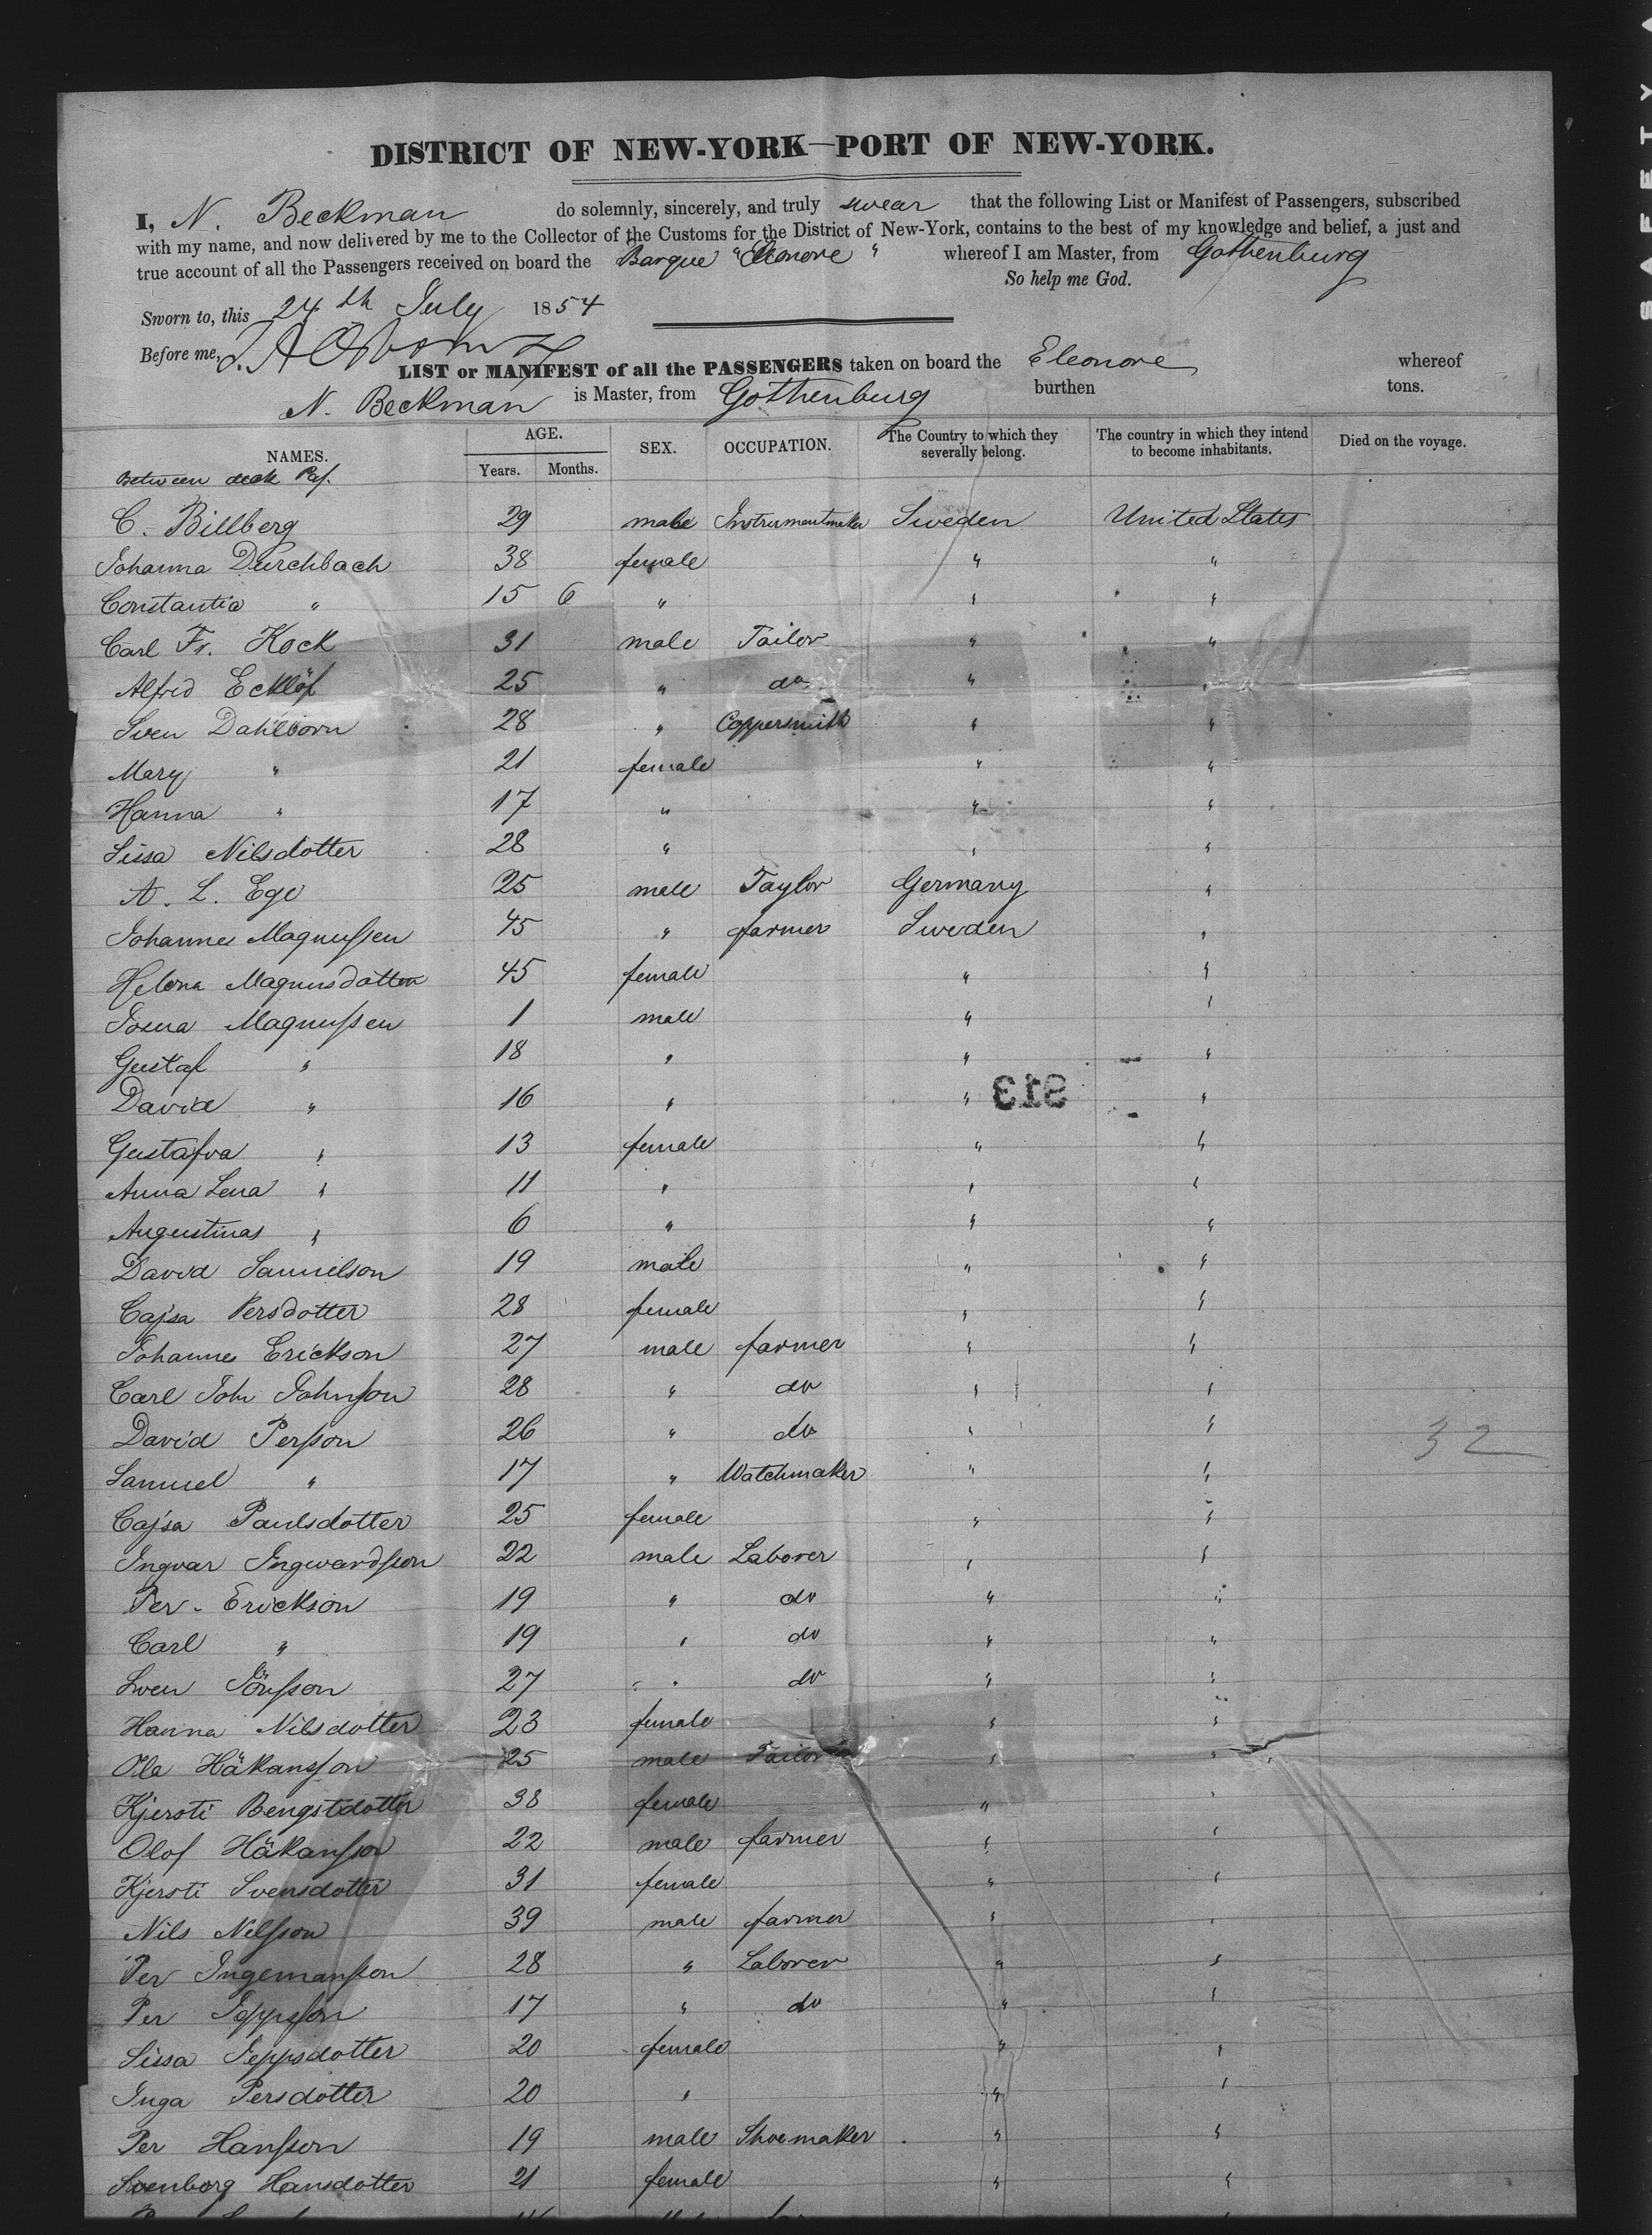 DISTRICT OF NEW-YORK—PORT OF NEW-YORK.
I, N. Beckman do solemnly, sincerely, and truly swear that the following List or Manifest of Passengers, subscribed
with my name, and now delivered by me to the Collector of the Customs for the District of New-York, contains to the best of my knowledge and belief, a just and
true account of all the Passengers received on board the Barque "Eleonore" whereof I am Master, from Gothenburg
So help me God.
Sworn to, this 24th July 1854
Before me,
LIST or MANIFEST of all the PASSENGERS taken on board the Eleonore whereof
N. Beckman is Master, from Gothenburg burthen tons.
NAMES. AGE. Years. Months. SEX. OCCUPATION. The Country to which they severally belong. The country in which they intend to become inhabitants. Died on the voyage.
Between deck
C. Billberg 29 male Instrumentmaker Sweden United States
Johanna Durchbach 38 female " "
Constantia " 15 6 " " "
Carl Fr. Kock 31 male Tailor " "
Alfred Ecklöf 25 " do " "
Sven Dahlborn 28 " Coppersmith " "
Mary " 21 female " "
Hanna " 17 " " "
Sissa Nilsdotter 28 " " "
A. L. Ege 25 male Taylor Germany "
Johannes Magnussen 45 " farmer Sweden "
Helena Magnusdotter 45 female " "
Magnussen 1 male " "
Gustaf " 18 " " "
David " 16 " " "
Gustafva " 13 female " "
Anna Lena " 11 " " "
Augustinas " 6 " " "
David Samuelson 19 male " "
Cajsa Persdotter 28 female " "
Johannes Erickson 27 male farmer " "
Carl Joh Johnson 28 " do " "
David Persson 26 " do " "
32
Samuel " 17 " Watchmaker " "
Cajsa Paulsdotter 25 female " "
Ingvar Ingwardsson 22 male Laborer " "
Per Erickson 19 " do " "
Carl " 19 " do " "
Swen Jönsson 27 " do " "
Hanna Nilsdotter 23 female " "
Ola Håkansson 25 male Tailor " "
Kjersti Bengstdotter 38 female " "
Olof Håkansson 22 male farmer " "
Kjersti Svensdotter 31 female " "
Nils Nelsson 39 male farmer " "
Per Ingemansson 28 " Laborer " "
Per Jeppsson 17 " do " "
Sissa Jeppsdotter 20 female " "
Inga Persdotter 20 " " "
Per Hansson 19 male Shoemaker " "
Svenborg Hansdotter 21 female " "
SAFETY